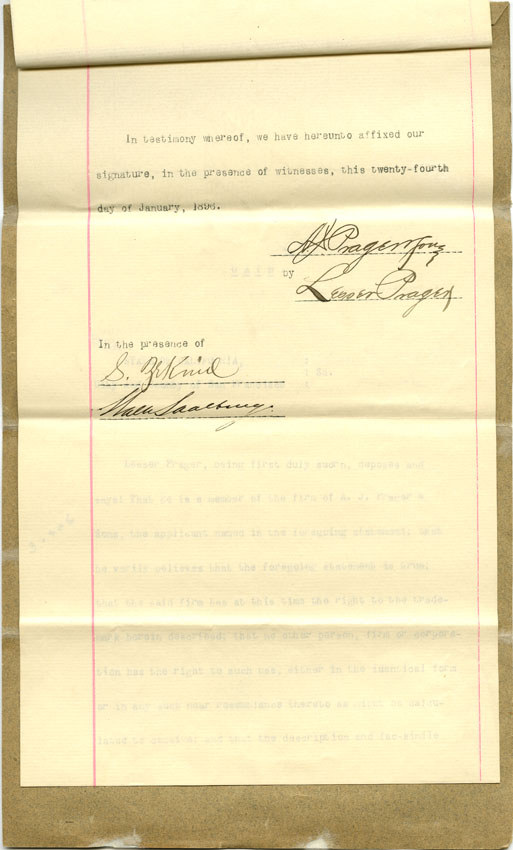 In testimony whereof, we have hereunto affixed our
signature, in the presence of witnesses, this twenty-fourth
day of January, 1898.
A J Prager & Sons
by
Lesser Prager
In the presence of
S.
Walter Saalburg.
Lesser Prager, being first duly sworn, deposes and
says: That he is a member of the firm of A. J. Prager &
Sons, the applicant named in the foregoing statement; that
he verily believes that the foregoing statement is true;
that the said firm has at this time the right to the trade-
mark herein described; that no other person, firm or corpora-
tion has the right to such use, either in the identical form
or in any such near resemblance thereto as might be calcu-
lated to deceive; and that the description and fac-simile